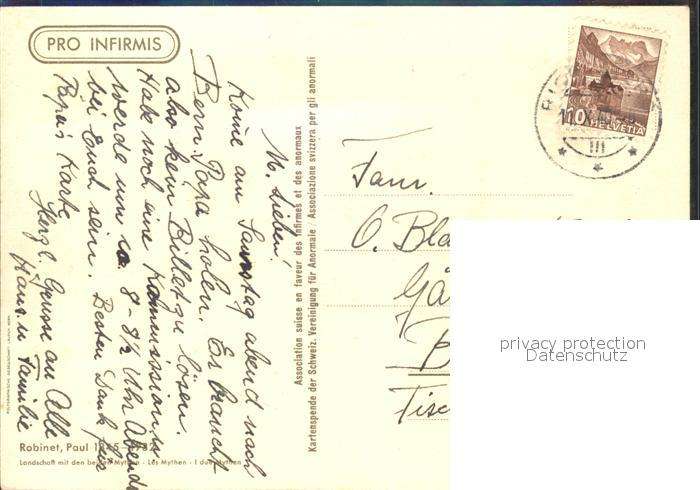 PRO INFIRMIS
M. Lieben!
Kome am Samstag abend nach
Bern Papa holen. Er braucht
also kein Billet zu lösen.
Habe noch eine Kommission u
werde um ca. 8 - 8½ Uhr Abends
bei Euch sein. Besten Dank für
Papa's Karte
Herzl. Grüsse an Alle
Hans u Familie
Association suisse en faveur des infirmes et des anormaux / Associazione svizzera per gli anormali
Kartenspende der Schweiz. Vereinigung für Anormale
Robinet, Paul
Landschaft mit den beiden Mythen · Les Mythen · I due Mythen
10
HELVETIA
III
Fam.
O. Bla
Gä
B
privacy protection
Datenschutz